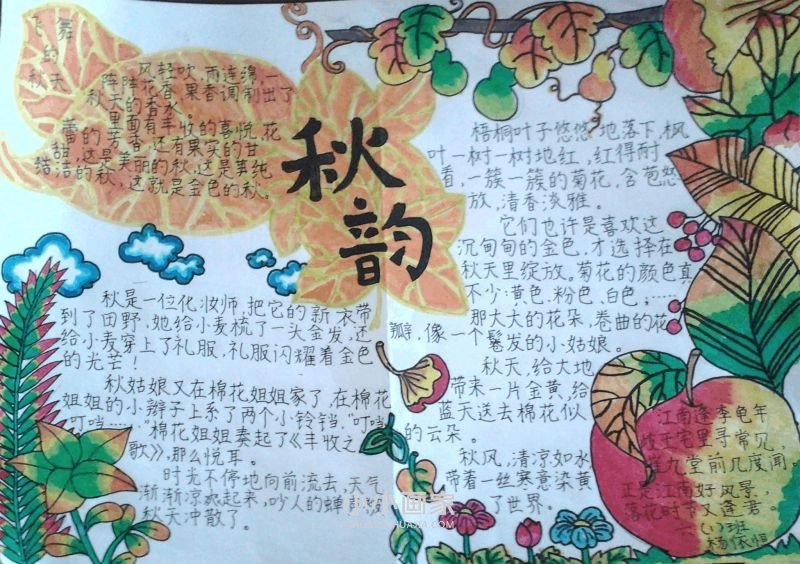 飞舞
的
秋天
阵阵风轻吹,雨连绵,一
秋天花香果香调制出了
的香水。
里面有丰收的喜悦,花
蕾的芳香,还有果实的甘
甜,这是美丽的秋,这是单纯
结洁的秋,这就是金色的秋。
秋
韵
秋是一位化妆师,把它的新衣带
到了田野,她给小麦梳了一头金发,还
给小麦穿上了礼服,礼服闪耀着金色
的光芒!
秋姑娘又在棉花姐姐家了,在棉花
姐姐的小辫子上系了两个小铃铛,"叮当
叮当……"棉花姐姐奏起了《丰收之
歌》,那么悦耳。
时光不停地向前流去,天气
渐渐凉爽起来,吵人的蝉
秋天冲散了。
梧桐叶子悠悠地落下,枫
叶一树一树地红,红得耐
看,一簇一簇的菊花,含苞怒
放,清香淡雅。
它们也许是喜欢这
沉甸甸的金色,才选择在
秋天里绽放。菊花的颜色真
不少:黄色、粉色、白色,……
那大大的花朵,卷曲的花
瓣,像一个鬈发的小姑娘。
秋天,给大地
带来一片金黄,给
蓝天送去棉花似
的云朵。
秋风,清凉如水
带着一丝寒意染黄
了世界。
江南逢李龟年
岐王宅里寻常见,
崔九堂前几度闻。
正是江南好风景,
落花时节又逢君。
(1)班
小小画家